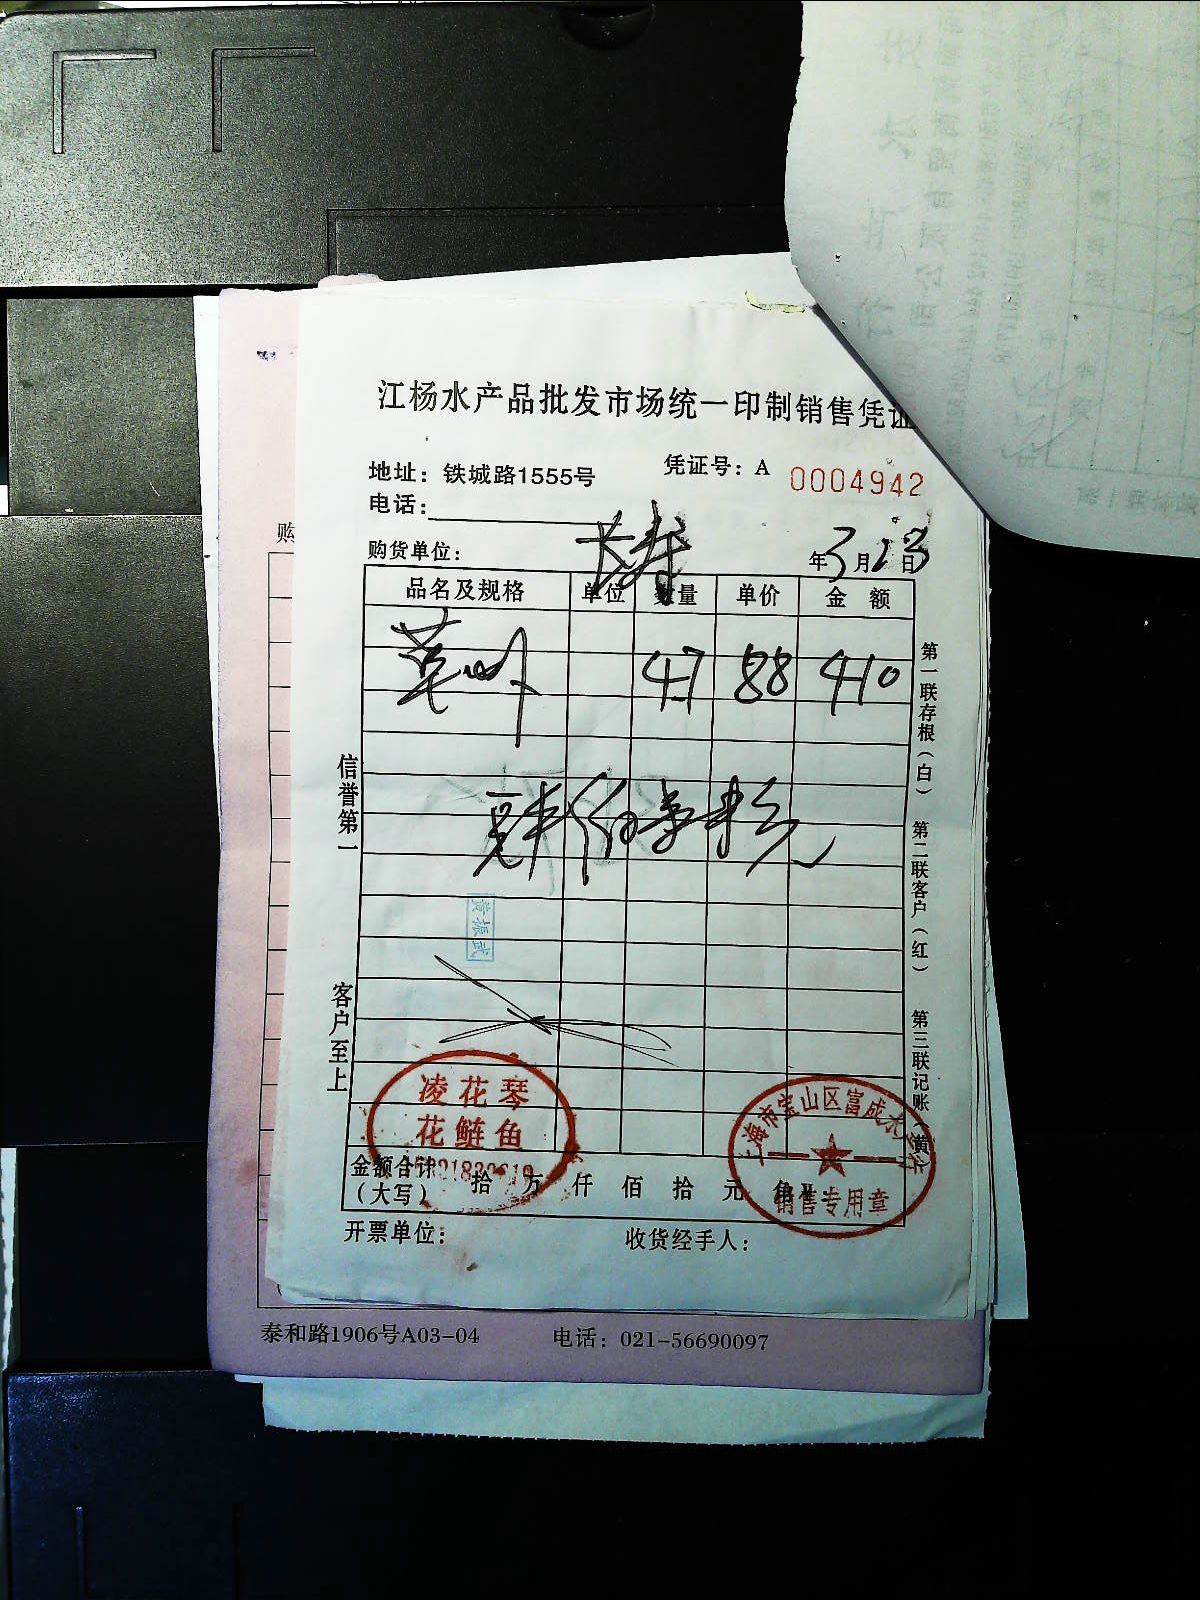 江杨水产品批发市场统一印制销售凭证
地址：铁城路1555号 凭证号：A 0004942
电话：
购货单位：长寿 年3月13日
品名及规格 单位 数量 单价 金额
47 88 410
信誉第一
客户至上
第一联存根（白） 第二联客户（红） 第三联记账（黄）
黄振武
凌花琴
花鲢鱼
上海市宝山区富成水
销售专用章
金额合计（大写） 拾 万 仟 佰 拾 元 角
开票单位： 收货经手人：
购
泰和路1906号A03-04 电话：021-56690097